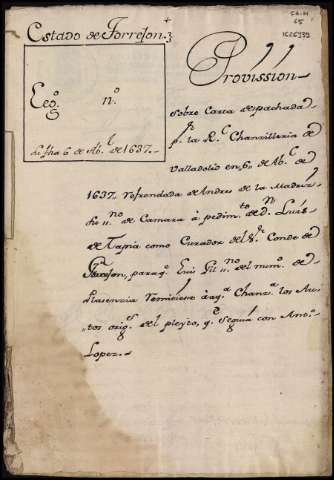 Estado de Torrejon.
Leg.º n.º
su fha 6 de Ab.l de 1637.
CA-M.
65
Provission
sobre Carta despachada
p.r la R.l Chanzilleria de
Valladolid en 6,, de Ab.l de
1637. refrendada de Andres de la Madriz
ss.no de Camara à pedim.to de D.n Luis
de Tapia como Curador del S.r Conde de
Torrejon, para q.e Luis Gil ss.no del num.o de
Plasenzia remitiese à aq.a Chanz.a los Au-
tos orig.s del pleyto, q.e seguia con Ant.o
Lopez.